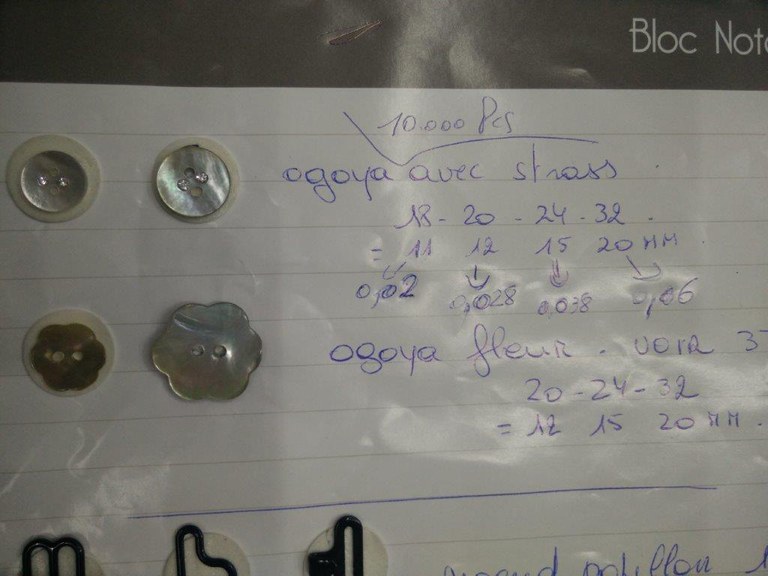 Bloc Not
10.000 Pcs
ogoya avec strass.
18 - 20 - 24 - 32.
= 11 12 15 20 MM
0,02 0,028 0,038 0,06
ogoya fleur. voir 3
20 - 24 - 32
= 12 15 20 MM.